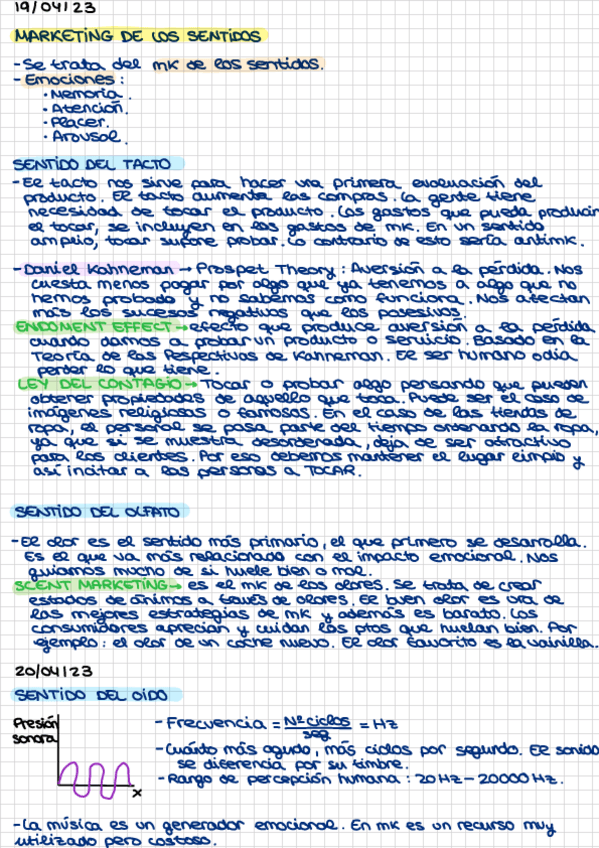 19/04/23
MARKETING DE LOS SENTIDOS
- Se trata del mk de los sentidos.
- Emociones:
· Memoria.
· Atención.
· Placer.
· Arousal.
SENTIDO DEL TACTO
- El tacto nos sirve para hacer una primera evaluación del
producto. El tacto aumenta las compras. La gente tiene
necesidad de tocar el producto. Los gastos que pueda producir
el tocar, se incluyen en los gastos de mk. En un sentido
amplio, tocar supone probar. Lo contrario de esto sería antimk.
- Daniel Kahneman → Prospet Theory: Aversión a la pérdida. Nos
cuesta menos pagar por algo que ya tenemos a algo que no
hemos probado y no sabemos como funciona. Nos afectan
más los sucesos negativos que los posesivos.
ENDOMENT EFFECT → efecto que produce aversión a la perdida
cuando damos a probar un producto o servicio. Basado en la
Teoría de las Pespectivas de Kahneman. El ser humano odia
perder lo que tiene.
LEY DEL CONTAGIO → Tocar o probar algo pensando que pueden
obtener propiedades de aquello que toca. Puede ser el caso de
imágenes religiosas o famosos. En el caso de las tiendas de
ropa, el personal se pasa parte del tiempo ordenando la ropa,
ya que si se muestra desordenada, deja de ser atractivo
para los clientes. Por eso debemos mantener el lugar limpio y
así incitar a las personas a TOCAR.
SENTIDO DEL OLFATO
- El olor es el sentido más primario, el que primero se desarrolla.
Es el que va más relacionado con el impacto emocional. Nos
guiamos mucho de si huele bien o mal.
SCENT MARKETING → es el mk de los olores. Se trata de crear
estados de ánimos a través de olores. El buen olor es una de
las mejores estrategias de mk y además es barato. Los
consumidores aprecian y cuidan los ptos que huelan bien. Por
ejemplo: el olor de un coche nuevo. El olor favorito es la vainilla.
20/04/23
SENTIDO DEL OÍDO
Presión
sonora
x
- Frecuencia = Nº ciclos / seg = Hz
- Cuánto más agudo, más ciclos por segundo. El sonido
se diferencia por su timbre.
- Rango de percepción humana: 20 Hz – 20000 Hz.
- La música es un generador emocional. En mk es un recurso muy
utilizado pero costoso.